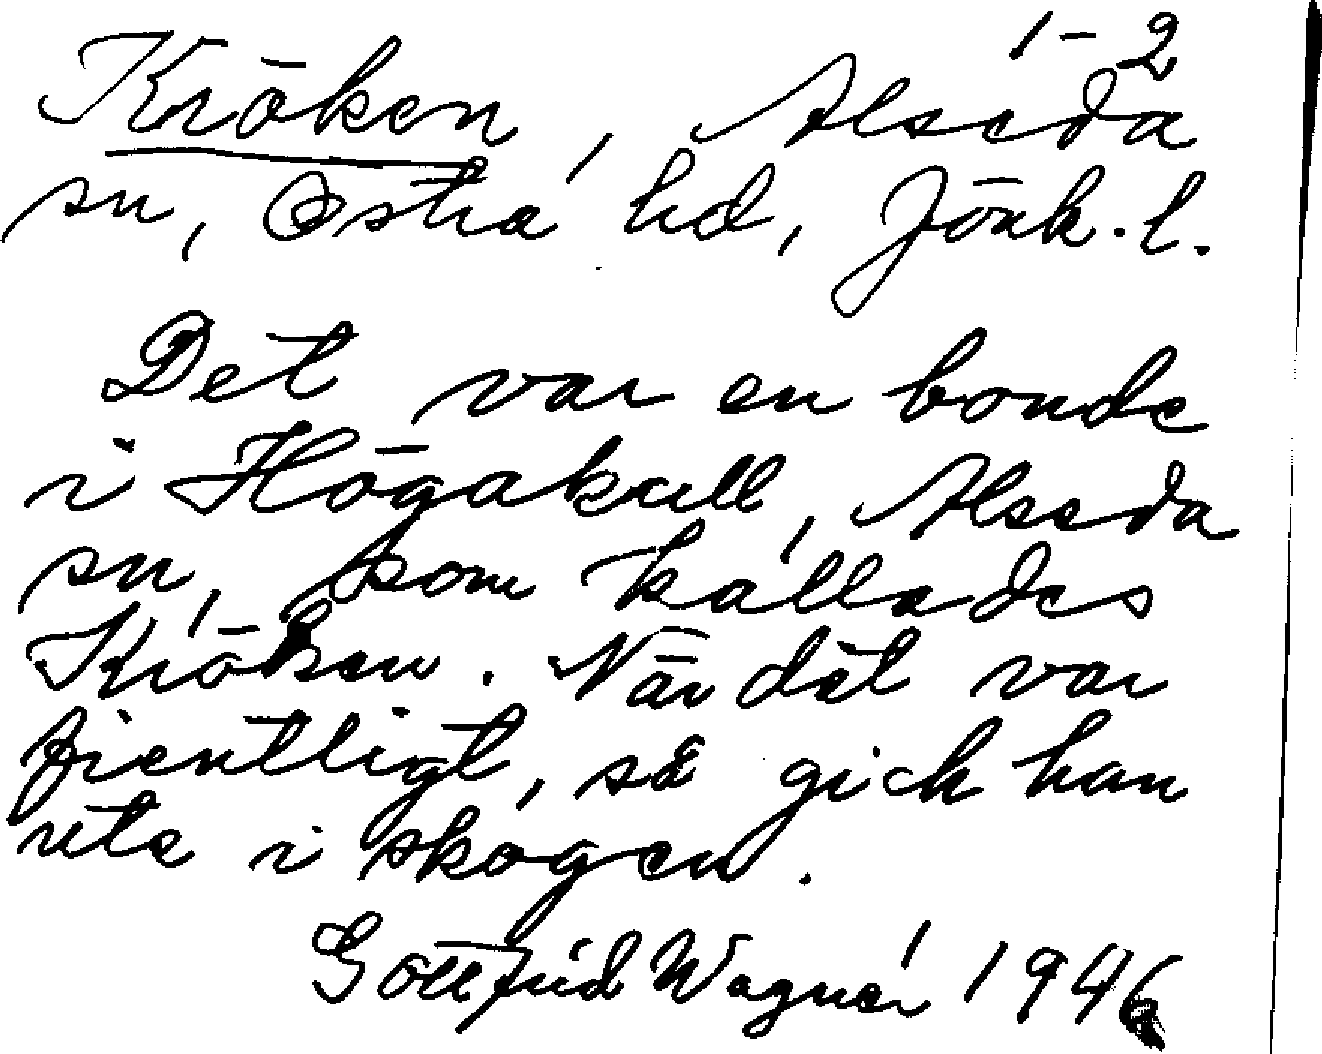 1-2
Kröken, Alseda
sn, Östra hd, Jönk.l.
Det var en bonde
i Högakull, Alseda
sn, som kallades
Kröken. När det var
fientligt, så gick han
ute i skogen.
Gottfrid Wagnér 1946